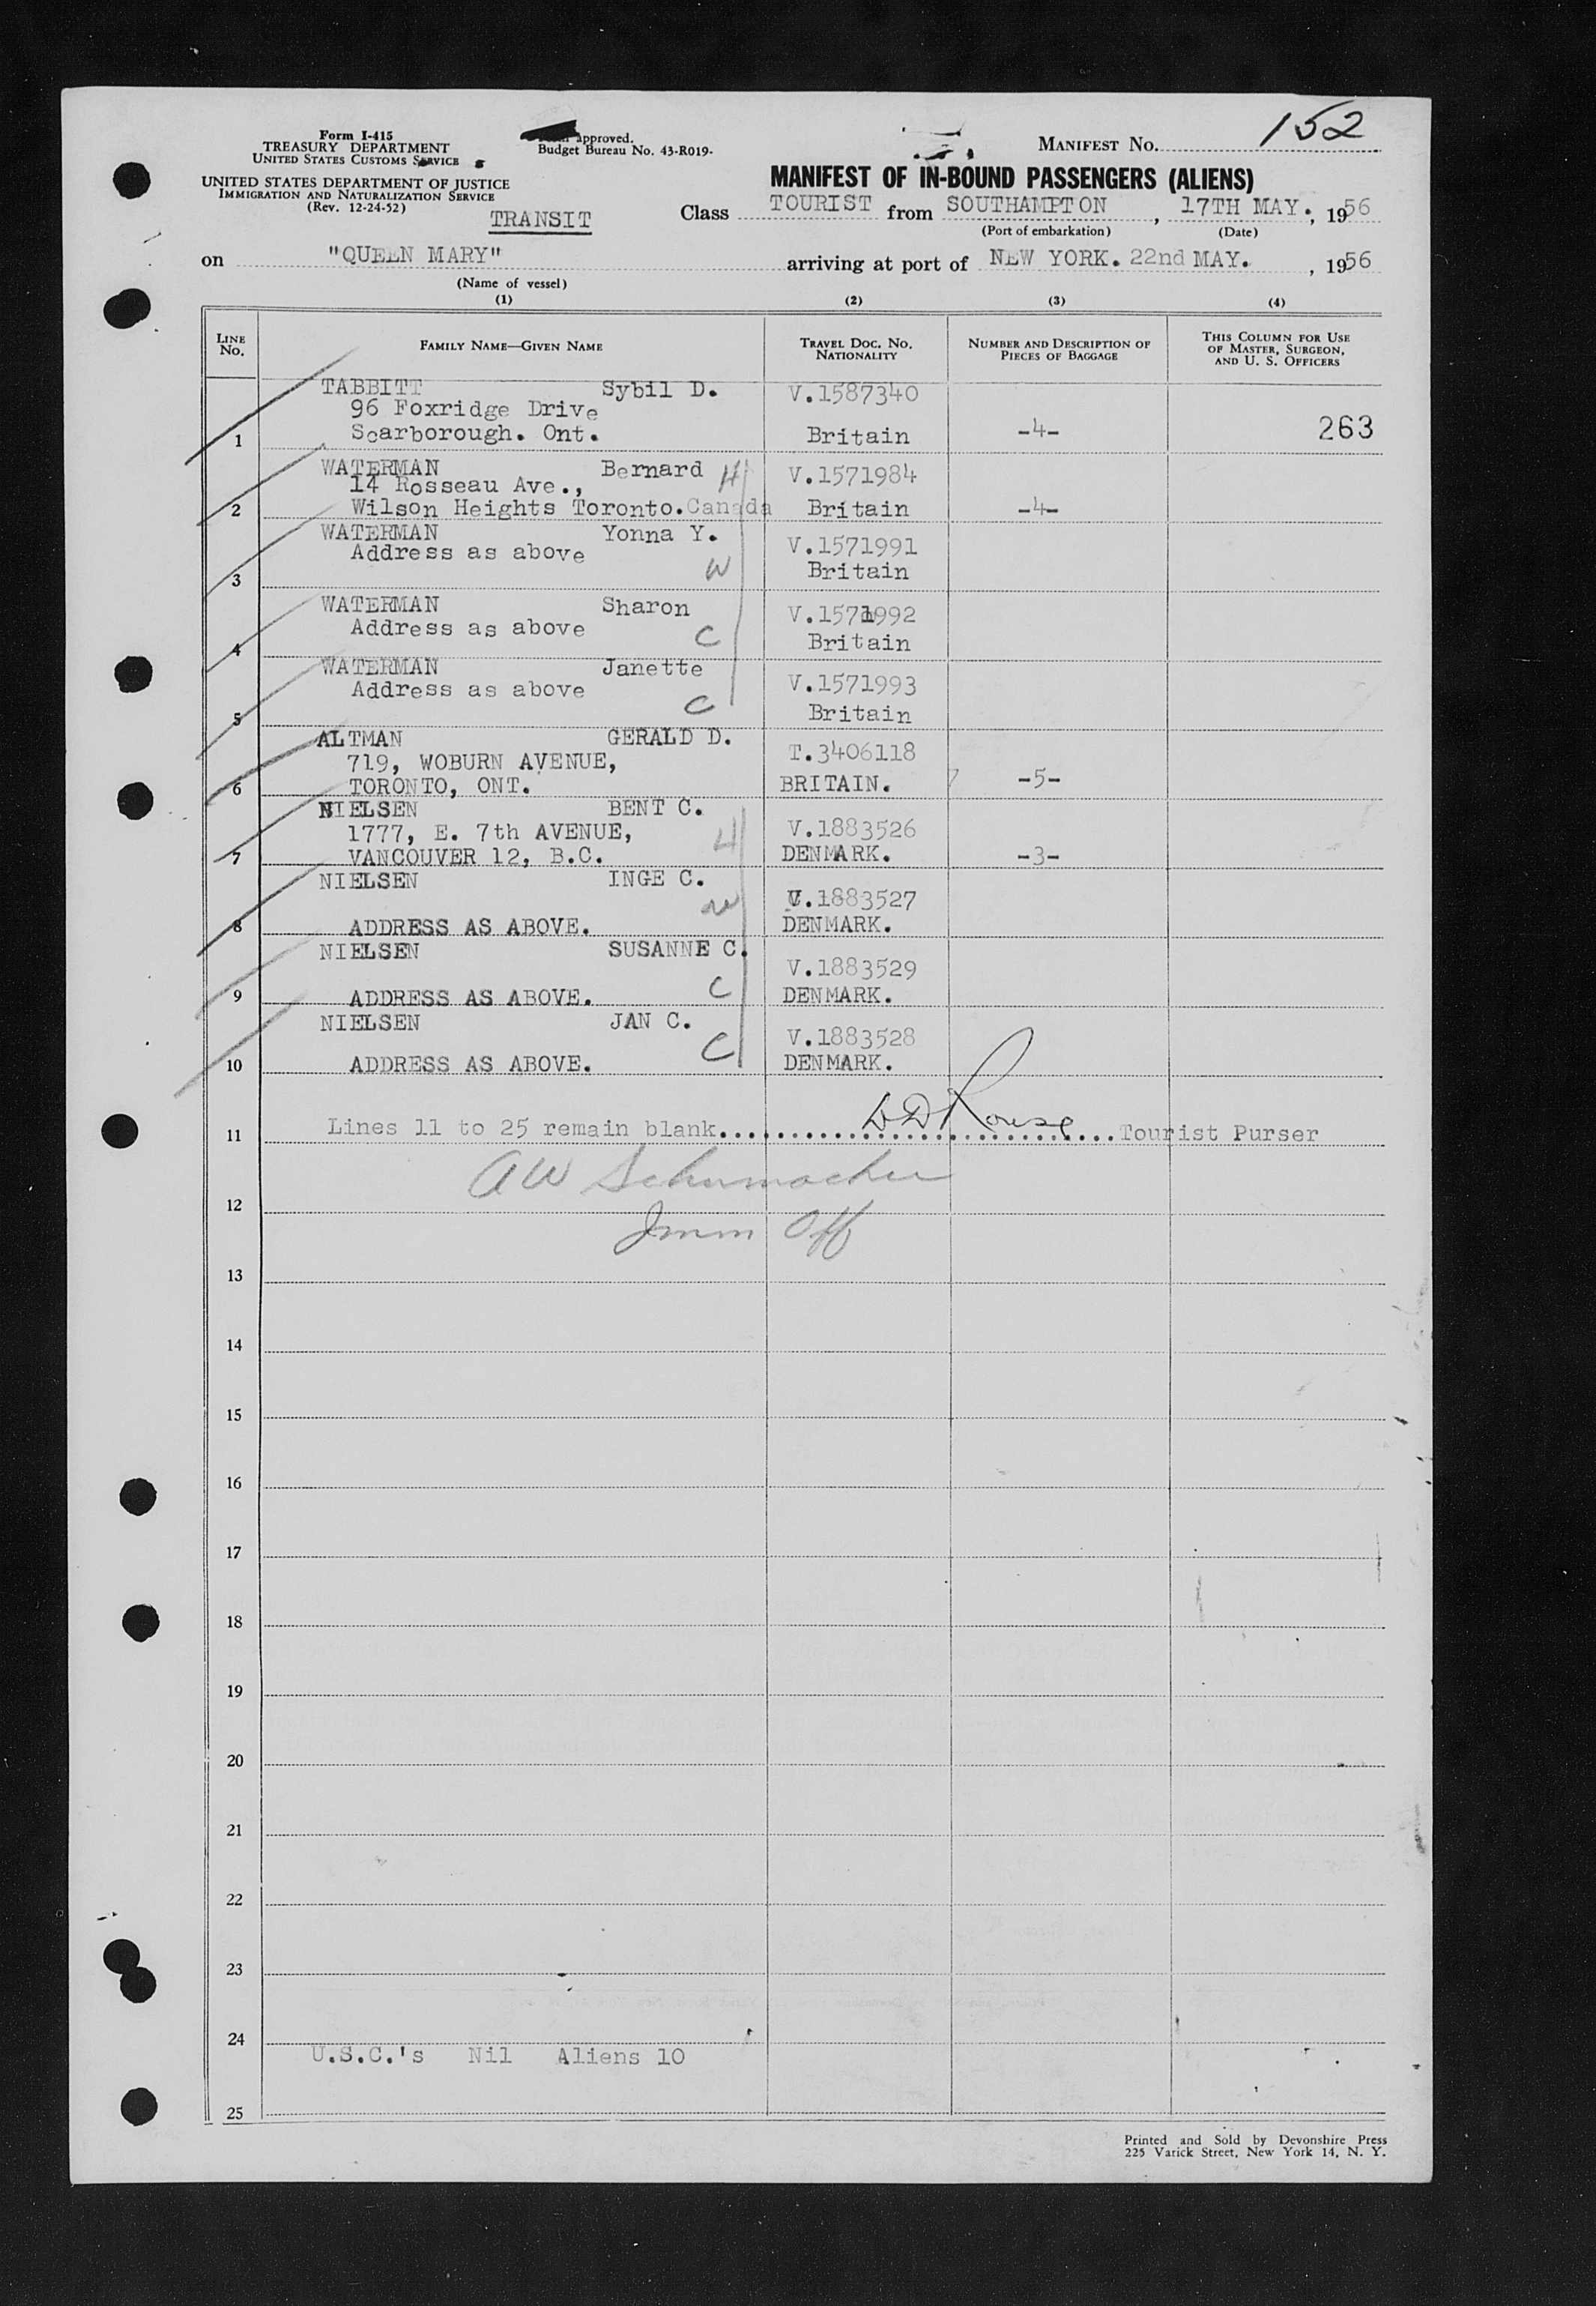 152
Form I-415
TREASURY DEPARTMENT
UNITED STATES CUSTOMS SERVICE
approved.
Budget Bureau No. 43-R019-
MANIFEST NO.
UNITED STATES DEPARTMENT OF JUSTICE
IMMIGRATION AND NATURALIZATION SERVICE
(Rev. 12-24-52)
TRANSIT
MANIFEST OF IN-BOUND PASSENGERS (ALIENS)
Class TOURIST from SOUTHAMPTON, 17TH MAY., 1956
(Port of embarkation) (Date)
on "QUEEN MARY" arriving at port of NEW YORK. 22nd MAY., 1956
(Name of vessel)
(1) (2) (3) (4)
LINE NO. FAMILY NAME—GIVEN NAME TRAVEL DOC. NO. NATIONALITY NUMBER AND DESCRIPTION OF PIECES OF BAGGAGE THIS COLUMN FOR USE OF MASTER, SURGEON, AND U. S. OFFICERS
TABBITT Sybil D. V.1587340
96 Foxridge Drive
1 Scarborough. Ont. Britain -4- 263
WATERMAN Bernard H V.1571984
14 Rosseau Ave.,
2 Wilson Heights Toronto.Canada Britain -4-
WATERMAN Yonna Y. V.1571991
Address as above
3 W Britain
WATERMAN Sharon V.1571992
Address as above C
4 Britain
WATERMAN Janette V.1571993
Address as above
5 C Britain
ALTMAN GERALD D. T.3406118
719, WOBURN AVENUE,
6 TORONTO, ONT. BRITAIN. -5-
NIELSEN BENT C. V.1883526
1777, E. 7th AVENUE, H
7 VANCOUVER 12, B.C. DENMARK. -3-
NIELSEN INGE C. V.1883527
w
8 ADDRESS AS ABOVE. DENMARK.
NIELSEN SUSANNE C. V.1883529
9 ADDRESS AS ABOVE. C DENMARK.
NIELSEN JAN C. V.1883528
10 ADDRESS AS ABOVE. C DENMARK.
11 Lines 11 to 25 remain blank. DD Rouse Tourist Purser
AW Schumacher
12
Imm Off
13
14
15
16
17
18
19
20
21
22
23
24
U.S.C.'s Nil Aliens 10
25
Printed and Sold by Devonshire Press
225 Varick Street, New York 14, N. Y.